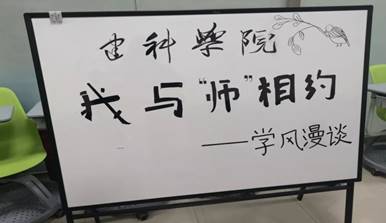 建科學院
我与“师”相约
——学风漫谈